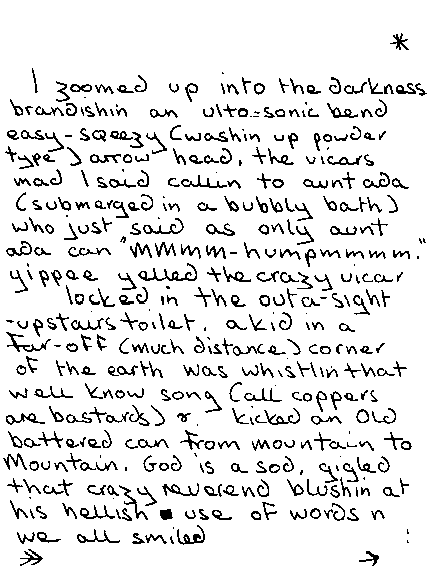 *
I zoomed up into the darkness
brandishin an ulto-sonic bend
easy-sqeezy (washin up powder
type) arrow head, the vicars
mad I said callin to aunt ada
(submerged in a bubbly bath)
who just said as only aunt
ada can "MMMM-humpmmmm."
yippee yelled the crazy vicar
locked in the outa-sight
-upstairs toilet. a kid in a
far-off (much distance) corner
of the earth was whistlin that
well know song (all coppers
are bastards) & kicked an Old
battered can from mountain to
Mountain. God is a sod, gigled
that crazy reverend blushin at
his hellish use of words n
we all smiled